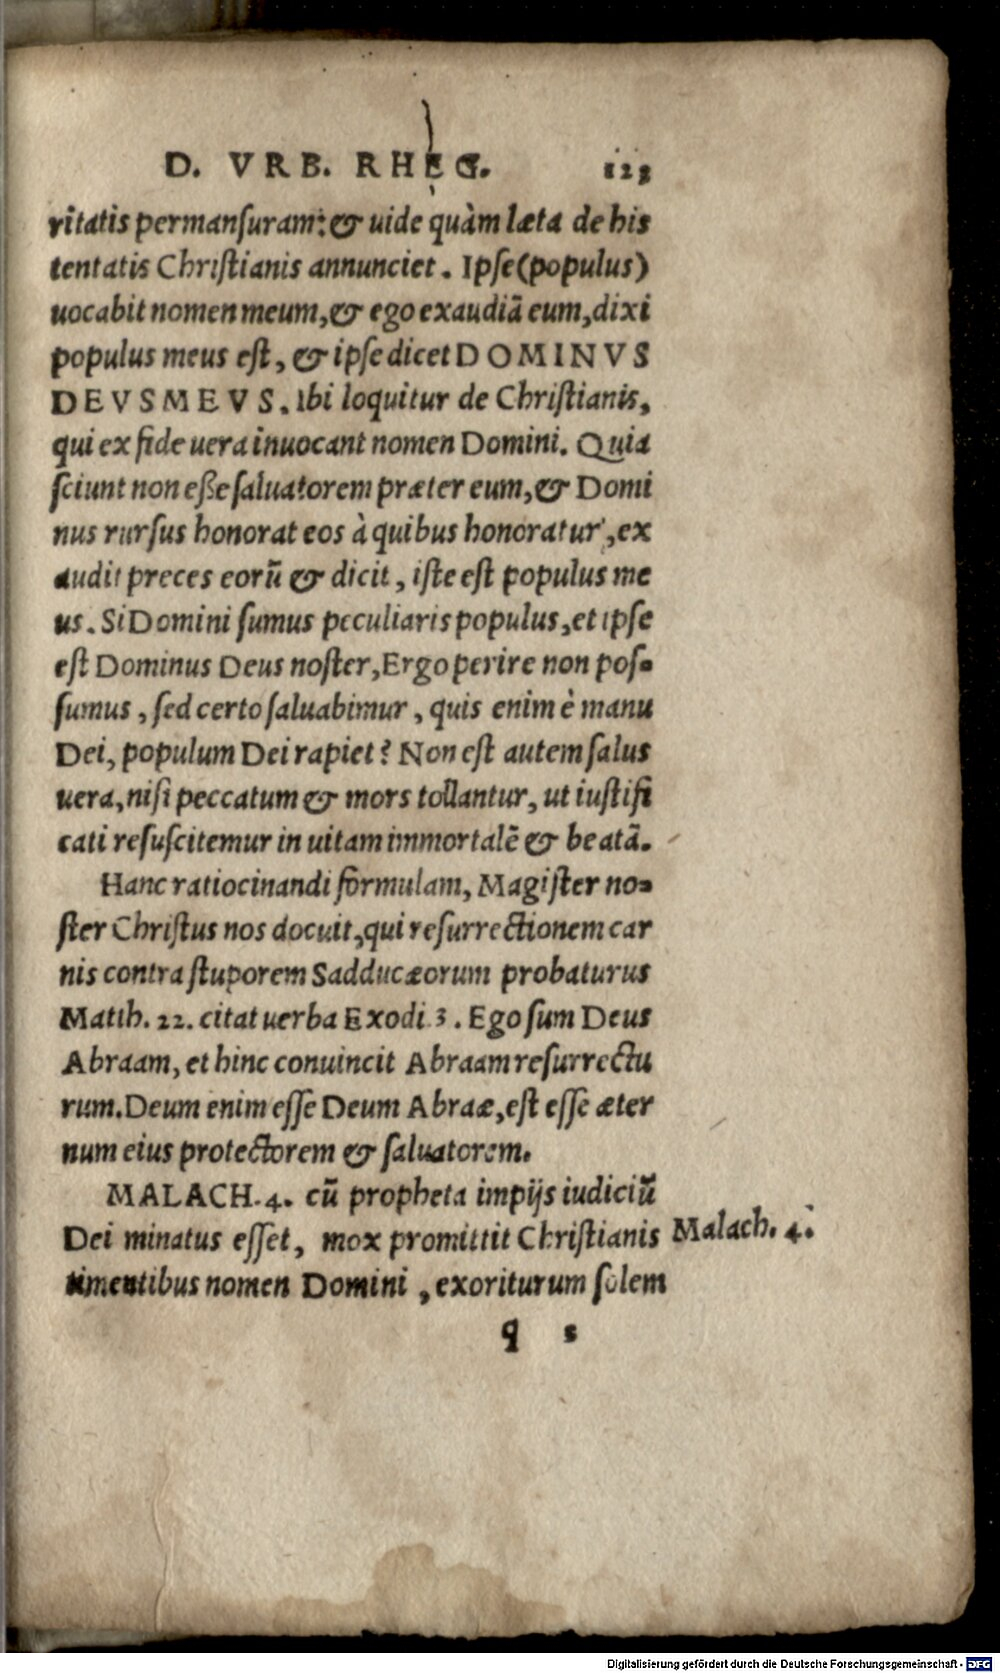 D. VRB. RHEG. 123
ritatis permansuram: & uide quàm læta de his
tentatis Christianis annunciet. Ipse (populus)
uocabit nomen meum, & ego exaudiã eum, dixi
populus meus est, & ipse dicet DOMINVS
DEVS MEVS. Ibi loquitur de Christianis,
qui ex fide uera inuocant nomen Domini. Quia
sciunt non eße saluatorem præter eum, & Domi
nus rursus honorat eos à quibus honoratur, ex
audit preces eorũ & dicit, iste est populus me
us. Si Domini sumus peculiaris populus, et ipse
est Dominus Deus noster, Ergo perire non pos-
sumus, sed certo saluabimur, quis enim è manu
Dei, populum Dei rapiet? Non est autem salus
uera, nisi peccatum & mors tollantur, ut iustifi
cati resuscitemur in uitam immortalẽ & beatã.
Hanc ratiocinandi formulam, Magister no-
ster Christus nos docuit, qui resurrectionem car
nis contra stuporem Sadducæorum probaturus
Matth. 22. citat uerba Exodi 3. Ego sum Deus
Abraam, et hinc conuincit Abraam resurrectu
rum. Deum enim esse Deum Abraæ, est esse æter
num eius protectorem & saluatorem.
MALACH. 4. cũ propheta impijs iudiciũ
Dei minatus esset, mox promittit Christianis
Malach. 4.
timentibus nomen Domini, exoriturum solem
q s
Digitalisierung gefördert durch die Deutsche Forschungsgemeinschaft - DFG